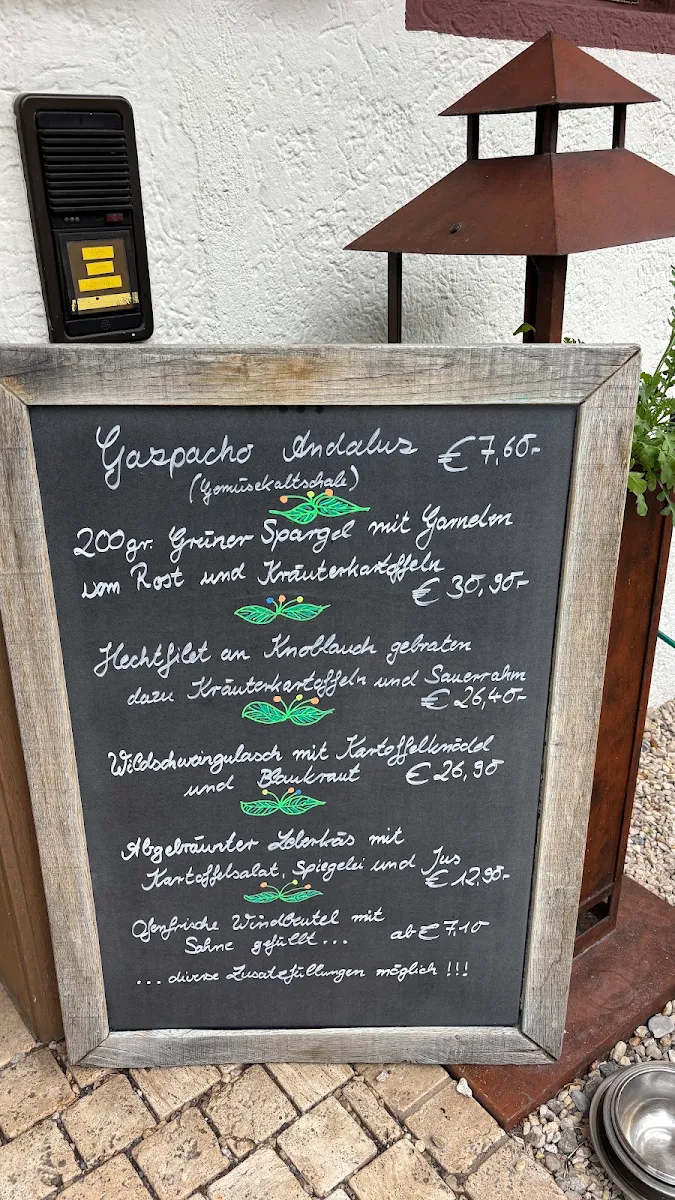 Gazpacho Andaluz € 7,60-
(Gemüsekaltschale)
200gr. Grüner Spargel mit Garnelen
vom Rost und Kräuterkartoffeln
€ 30,90-
Hechtfilet an Knoblauch gebraten
dazu Kräuterkartoffeln und Sauerrahm
€ 26,40-
Wildschweingulasch mit Kartoffelknödel
und Blaukraut € 26,90
Abgebräunter Leberkäs mit
Kartoffelsalat, Spiegelei und Jus
€ 12,90-
Ofenfrische Windbeutel mit
Sahne gefüllt... ab € 7,10
... diverse Zusatzfüllungen möglich !!!